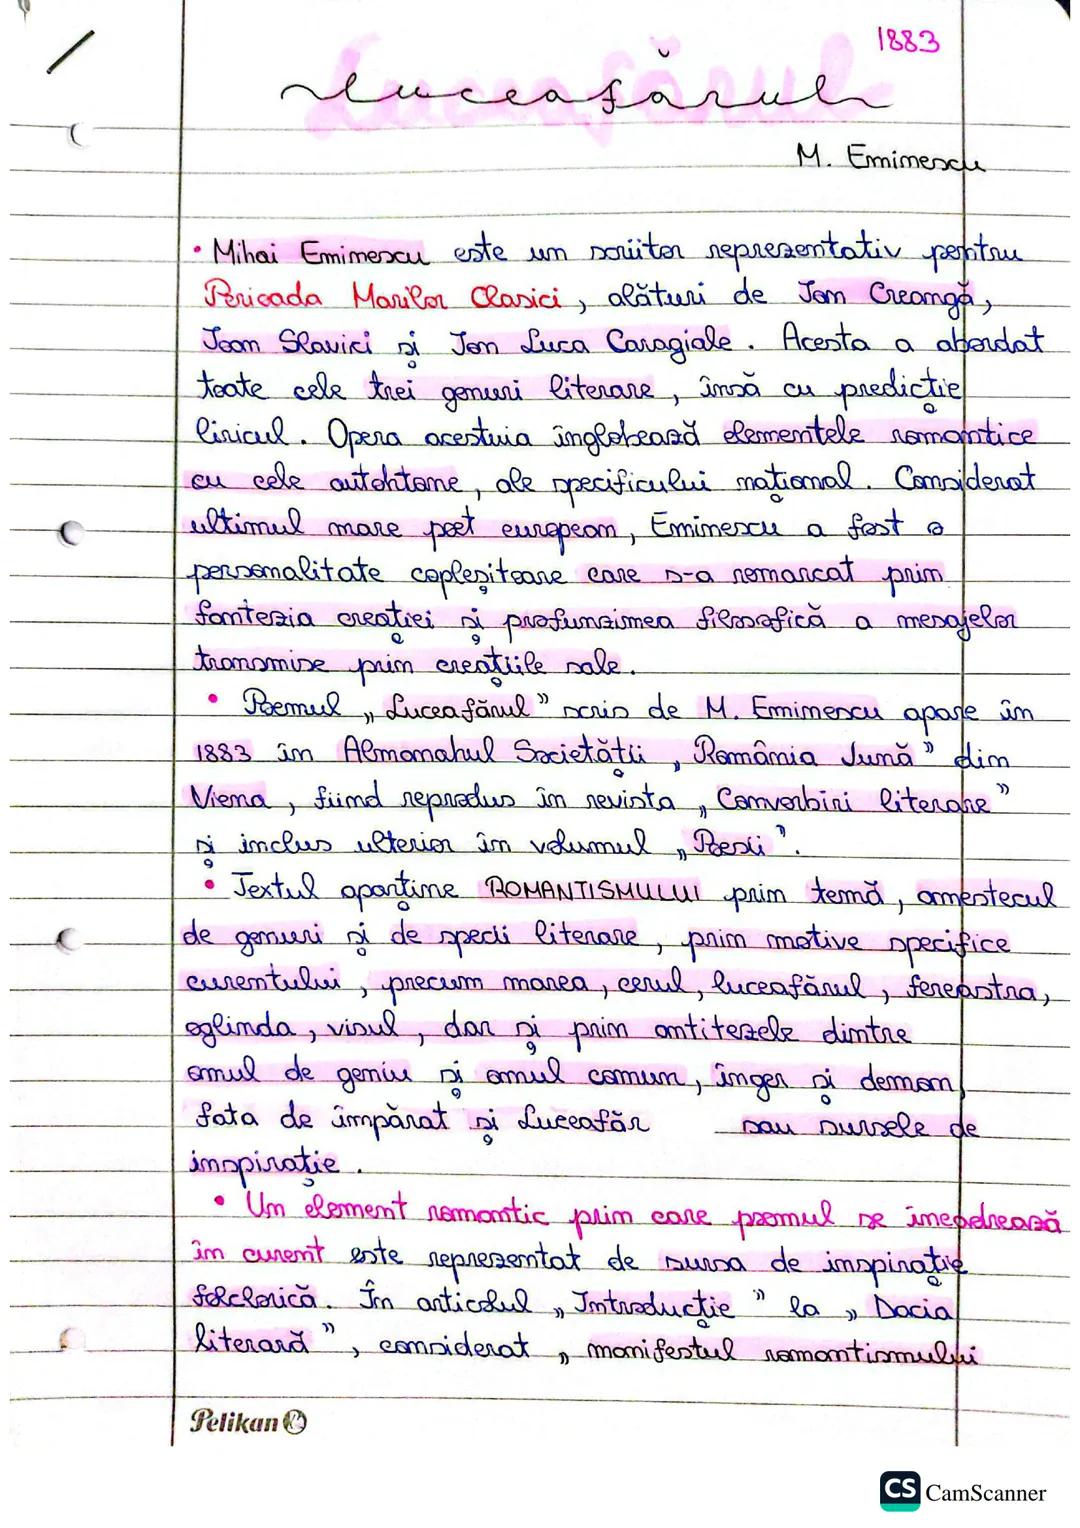 1883
Luceafărul
M. Eminescu
• Mihai Eminescu este un scriitor reprezentativ pentru
Perioada Marilor Clasici, alături de Ion Creangă,
Ioan Slavici și Ion Luca Caragiale. Acesta a abordat
toate cele trei genuri literare, însă cu predicție
liricul. Opera acestuia înglobează elementele romantice
cu cele autohtone, ale specificului național. Considerat
ultimul mare poet european, Eminescu a fost o
personalitate copleșitoare care s-a remarcat prin
fantezia creației și profunzimea filosofică a mesajelor
transmise prin creațiile sale.
• Poemul „Luceafărul" scris de M. Eminescu apare în
1883 în Almanahul Societății „România Jună" din
Viena, fiind reprodus în revista „Convorbiri literare"
și inclus ulterior în volumul „Poesii".
• Textul aparține ROMANTISMULUI prin temă, amestecul
de genuri și de specii literare, prin motive specifice
curentului, precum marea, cerul, luceafărul, fereastra,
oglinda, visul, dar și prin antitezele dintre
omul de geniu și omul comun, înger și demon,
fata de împărat și Luceafăr sau sursele de
inspirație.
• Un element romantic prin care poemul se încadrează
în curent este reprezentat de sursa de inspirație
folclorică. În articolul „Introducție" la „Dacia
literară", considerat „manifestul romantismului
Pelikan
CS CamScanner